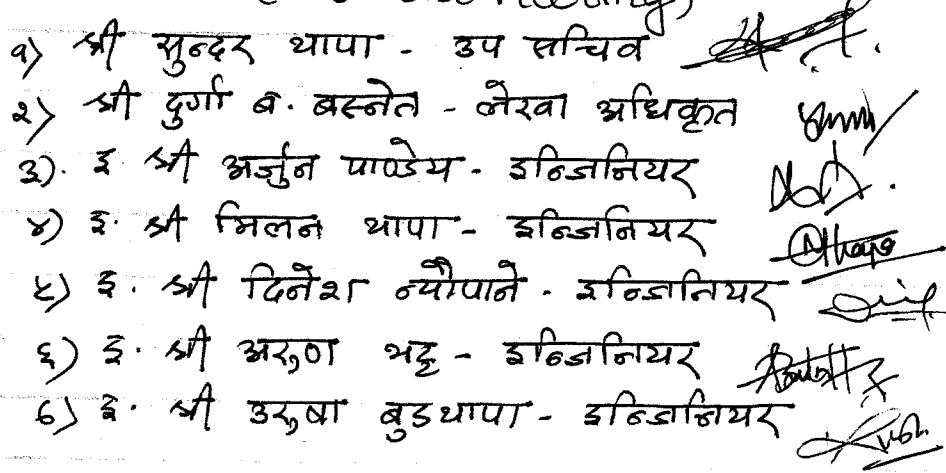 १) श्री सुन्दर थापा - उप सचिव
२) श्री दुर्गा ब. बस्नेत - लेखा अधिकृत
३). इ. श्री अर्जुन पाण्डेय - इन्जिनियर
४) इ. श्री मिलन थापा - इन्जिनियर
५) इ. श्री दिनेश न्यौपाने - इन्जिनियर
६) इ. श्री अरुण भट्ट - इन्जिनियर
७) इ. श्री उरुषा बुडथापा - इन्जिनियर